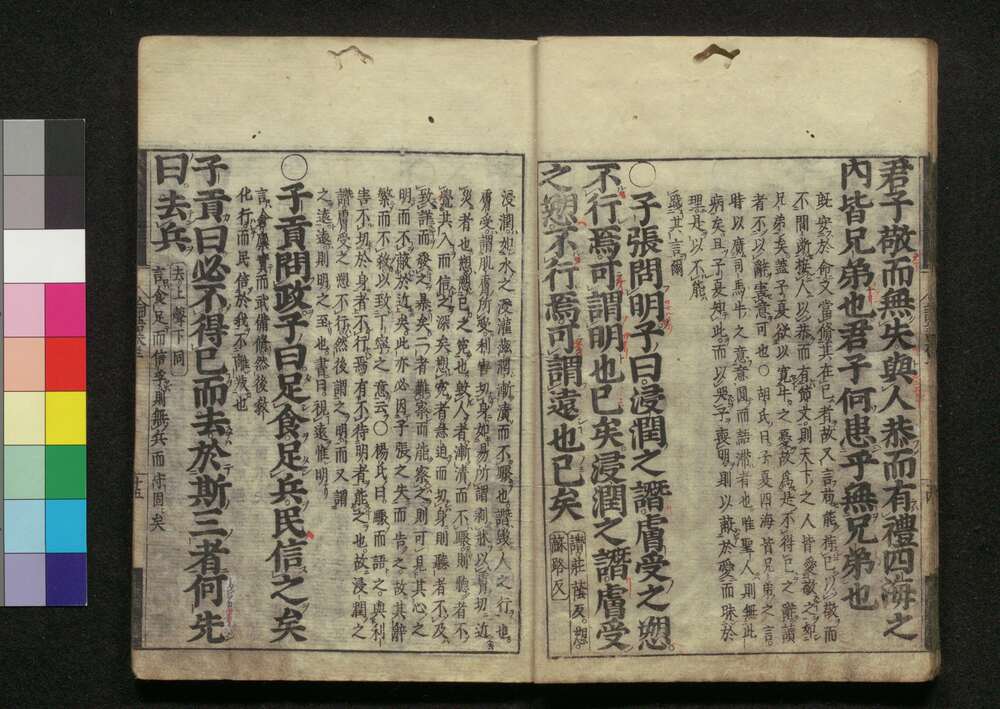 君子敬而無失與人恭而有禮四海之
内皆兄弟也君子何患乎無兄弟也
既安於命又當脩其在己者故又言苟能持己以敬而
不間斷接人以恭而有節文則天下之人皆愛敬之如
兄弟矣蓋子夏欲以寛牛之憂故爲是不得已之辭讀
者不以辭害意可也○胡氏曰子夏四海皆兄弟之言
特以廣司馬牛之意意圓而語滯者也惟聖人則無此
病矣且子夏知此而以哭子喪明則以蔽於愛而昧於
理是以不能
踐其言爾
○子張問明子曰浸潤之譖膚受之愬
不行焉可謂明也已矣浸潤之譖膚受
之愬不行焉可謂遠也已矣
譖莊蔭反愬
蘇路反
浸潤如水之浸灌滋潤漸漬而不驟也譖毀人之行也
膚受謂肌膚所受利害切身如易所謂剥牀以膚切近
災者也愬愬己之寃也毀人者漸漬而不驟則聽者不
覺其入而信之深矣愬寃者急迫而切身則聽者不及
致詳而發之暴矣二者難察而能察之則可見其心之
明而不蔽於近矣此亦必因子張之失而告之故其辭
繁而不殺以致丁寧之意云○楊氏曰驟而語之與利
害不切於身者不行焉有不待明者能之也故浸潤之
譖膚受之愬不行然後謂之明而又謂
之遠遠則明之至也書曰視遠惟明
○子貢問政子曰足食足兵民信之矣
言倉廩實而武備脩然後教
化行而民信於我不離叛也
子貢曰必不得已而去於斯三者何先
曰去兵
去上聲下同
言食足而信孚則無兵而守固矣
十五